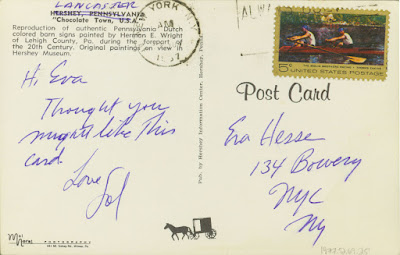 LANCASTER
HERSHEY, PENNSYLVANIA
"Chocolate Town, U.S.A."
Reproduction of authentic Pennsylvania Dutch
colored barn signs painted by Herman E. Wright
of Lehigh County, Pa. during the forepart of
the 20th Century. Original paintings on view in
Hershey Museum.
YORK
AM
5¢
UNITED STATES POSTAGE
Post Card
Hi, Eva
Thought you
might like this
card.
Love
Sol
Eva Hesse
134 Bowery
NYC
NY
Pub. by Hershey Information Center, Hershey, Penna.